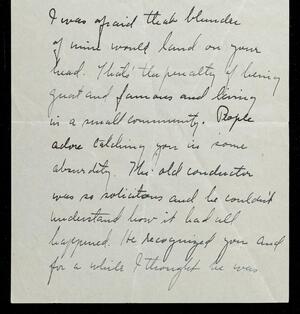 I was afraid that blunder
of mine would land on your
head. That's the penalty of being
great and famous and living
in a small community. People
adore catching you in some
absurdity. This old conductor
was so solicitous and he couldn't
understand how it had all
happened. He recognized you and
for a while I thought he was